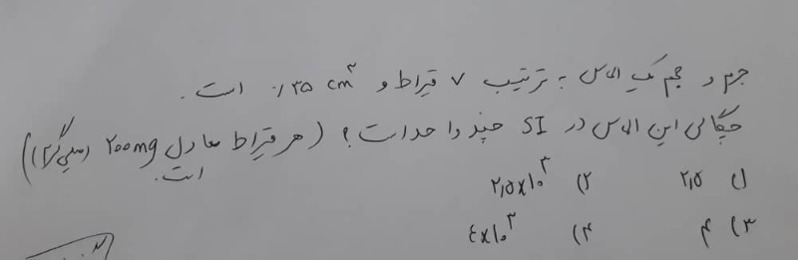 جرم و حجم یک الماس به ترتیب ۷ قیراط و ۰/۳۵ cm³ است.
چگالی این الماس در SI چند واحد است؟ (هر قیراط معادل ۲۰۰mg (میلی گرم))
است.
۱) ۲٫۵ ۲) ۲٫۵×۱۰³
۳) ۴ ۴) ۴×۱۰³